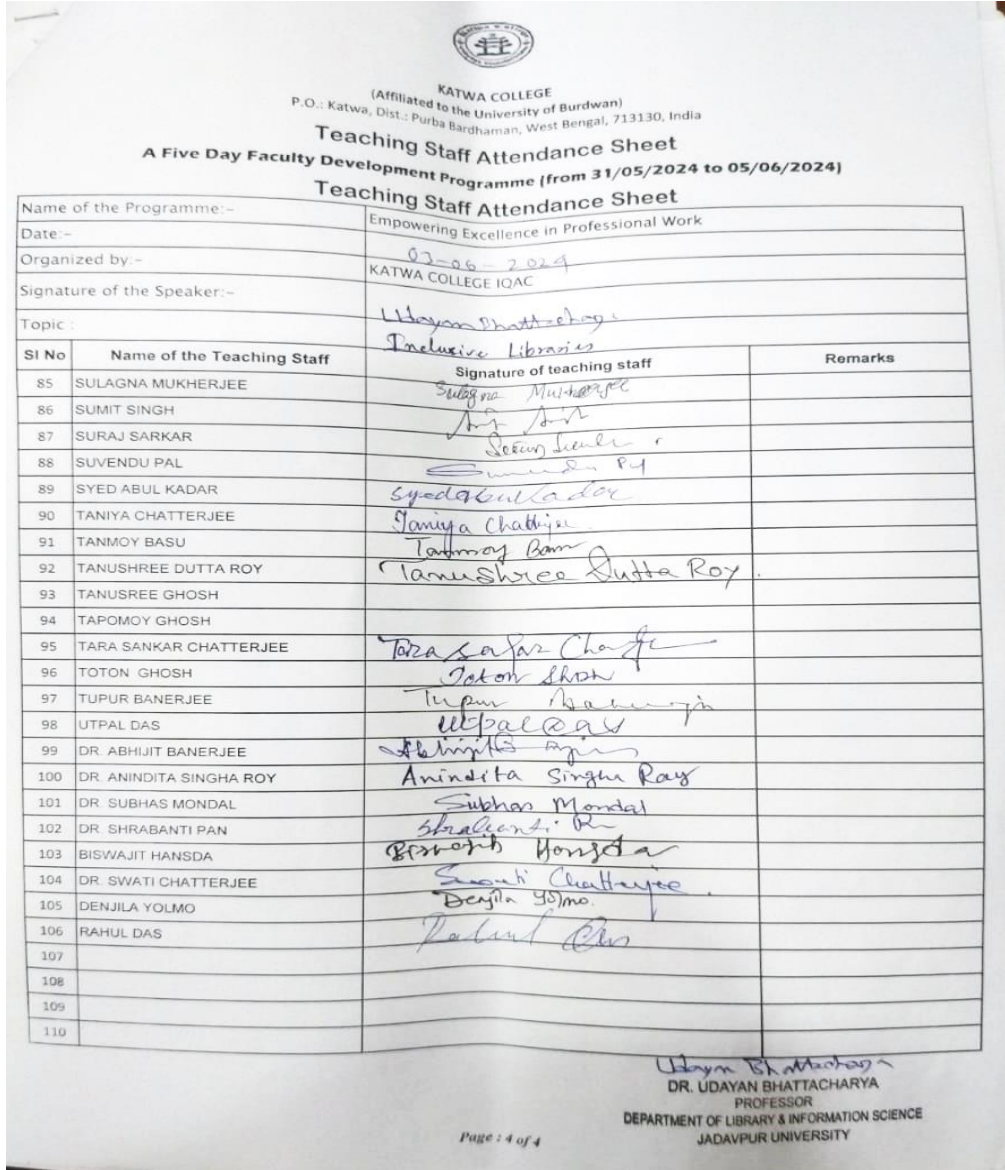 KATWA COLLEGE
(Affiliated to the University of Burdwan)
P.O.: Katwa, Dist.: Purba Bardhaman, West Bengal, 713130, India
Teaching Staff Attendance Sheet
A Five Day Faculty Development Programme (from 31/05/2024 to 05/06/2024)
Teaching Staff Attendance Sheet
Name of the Programme:- Empowering Excellence in Professional Work
Date:- 03-06-2024
Organized by:- KATWA COLLEGE IQAC
Signature of the Speaker:- Udayan Bhattacharya
Topic : Inclusive Libraries
Sl No Name of the Teaching Staff Signature of teaching staff Remarks
85 SULAGNA MUKHERJEE Sulagna Mukherjee
86 SUMIT SINGH
87 SURAJ SARKAR
88 SUVENDU PAL
89 SYED ABUL KADAR Syed Abul Kadar
90 TANIYA CHATTERJEE Taniya Chatterjee
91 TANMOY BASU Tanmoy Basu
92 TANUSHREE DUTTA ROY Tanushree Dutta Roy.
93 TANUSREE GHOSH
94 TAPOMOY GHOSH
95 TARA SANKAR CHATTERJEE
96 TOTON GHOSH Toton Ghosh
97 TUPUR BANERJEE Tupur Banerjee
98 UTPAL DAS Utpal Das
99 DR. ABHIJIT BANERJEE
100 DR. ANINDITA SINGHA ROY Anindita Singha Roy
101 DR. SUBHAS MONDAL Subhas Mondal
102 DR. SHRABANTI PAN
103 BISWAJIT HANSDA Biswajit Hansda
104 DR. SWATI CHATTERJEE Swati Chatterjee.
105 DENJILA YOLMO Denjila Yolmo.
106 RAHUL DAS Rahul Das
107
108
109
110
Udayan Bhattacharya
DR. UDAYAN BHATTACHARYA
PROFESSOR
DEPARTMENT OF LIBRARY & INFORMATION SCIENCE
JADAVPUR UNIVERSITY
Page : 4 of 4